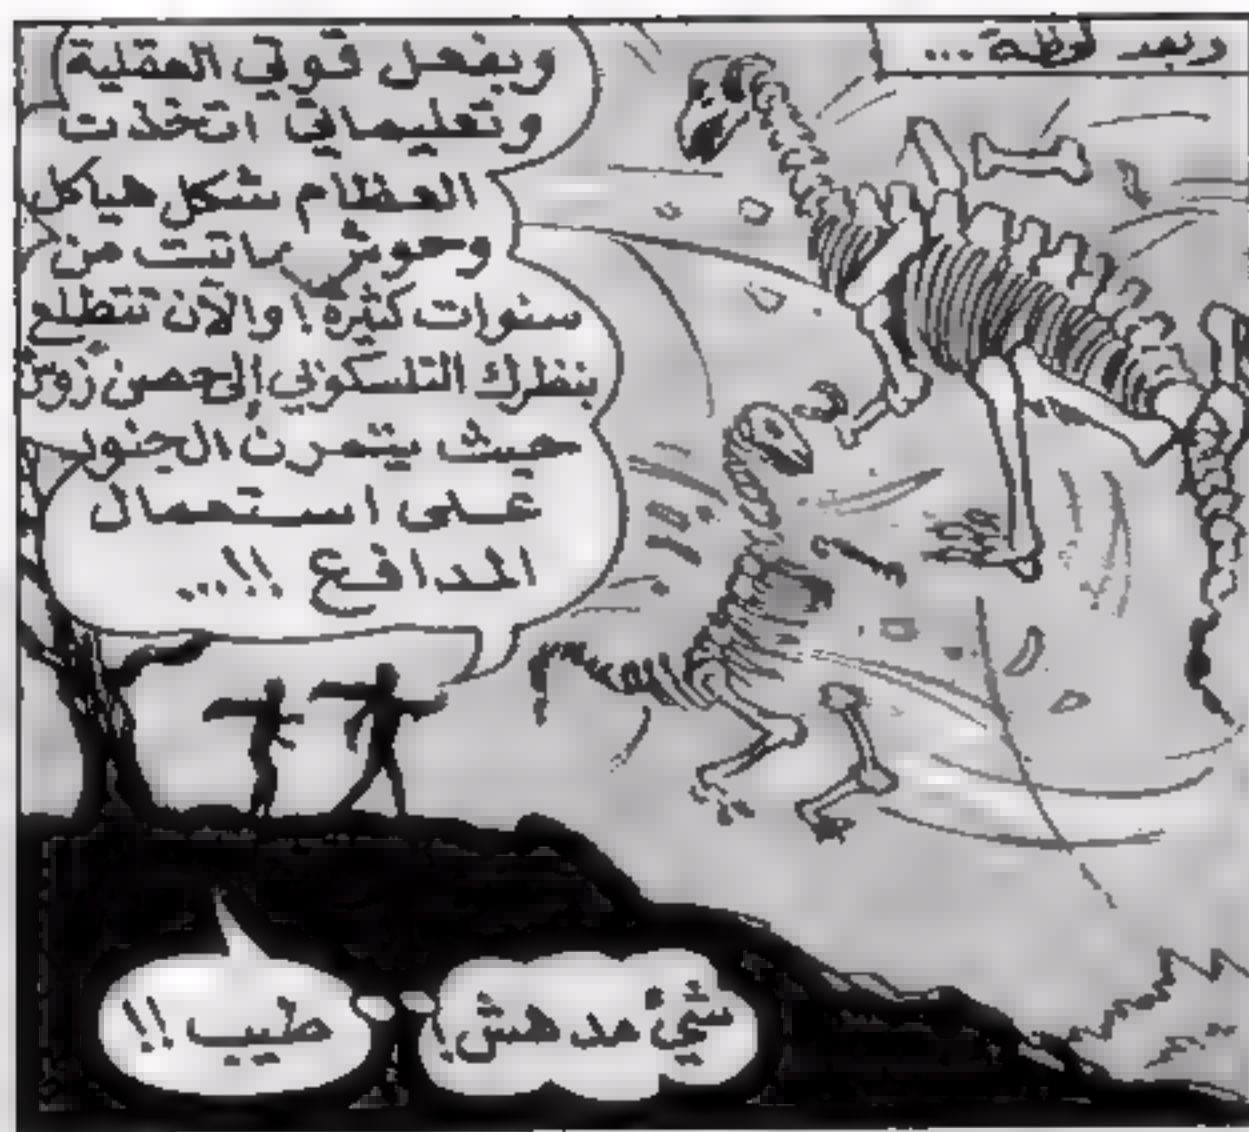 وبعد لحظة...
وبفعل قوتي العقلية
وتعليماتي اتخذت
العظام شكل هياكل
وحوش ماتت من
سنوات كثيرة! والآن تتطلع
بنظرك التلسكوبي إلى حصن
حيث يتمرن الجنود
على استعمال
المدافع !!...
شيء مدهش!
طيب !!